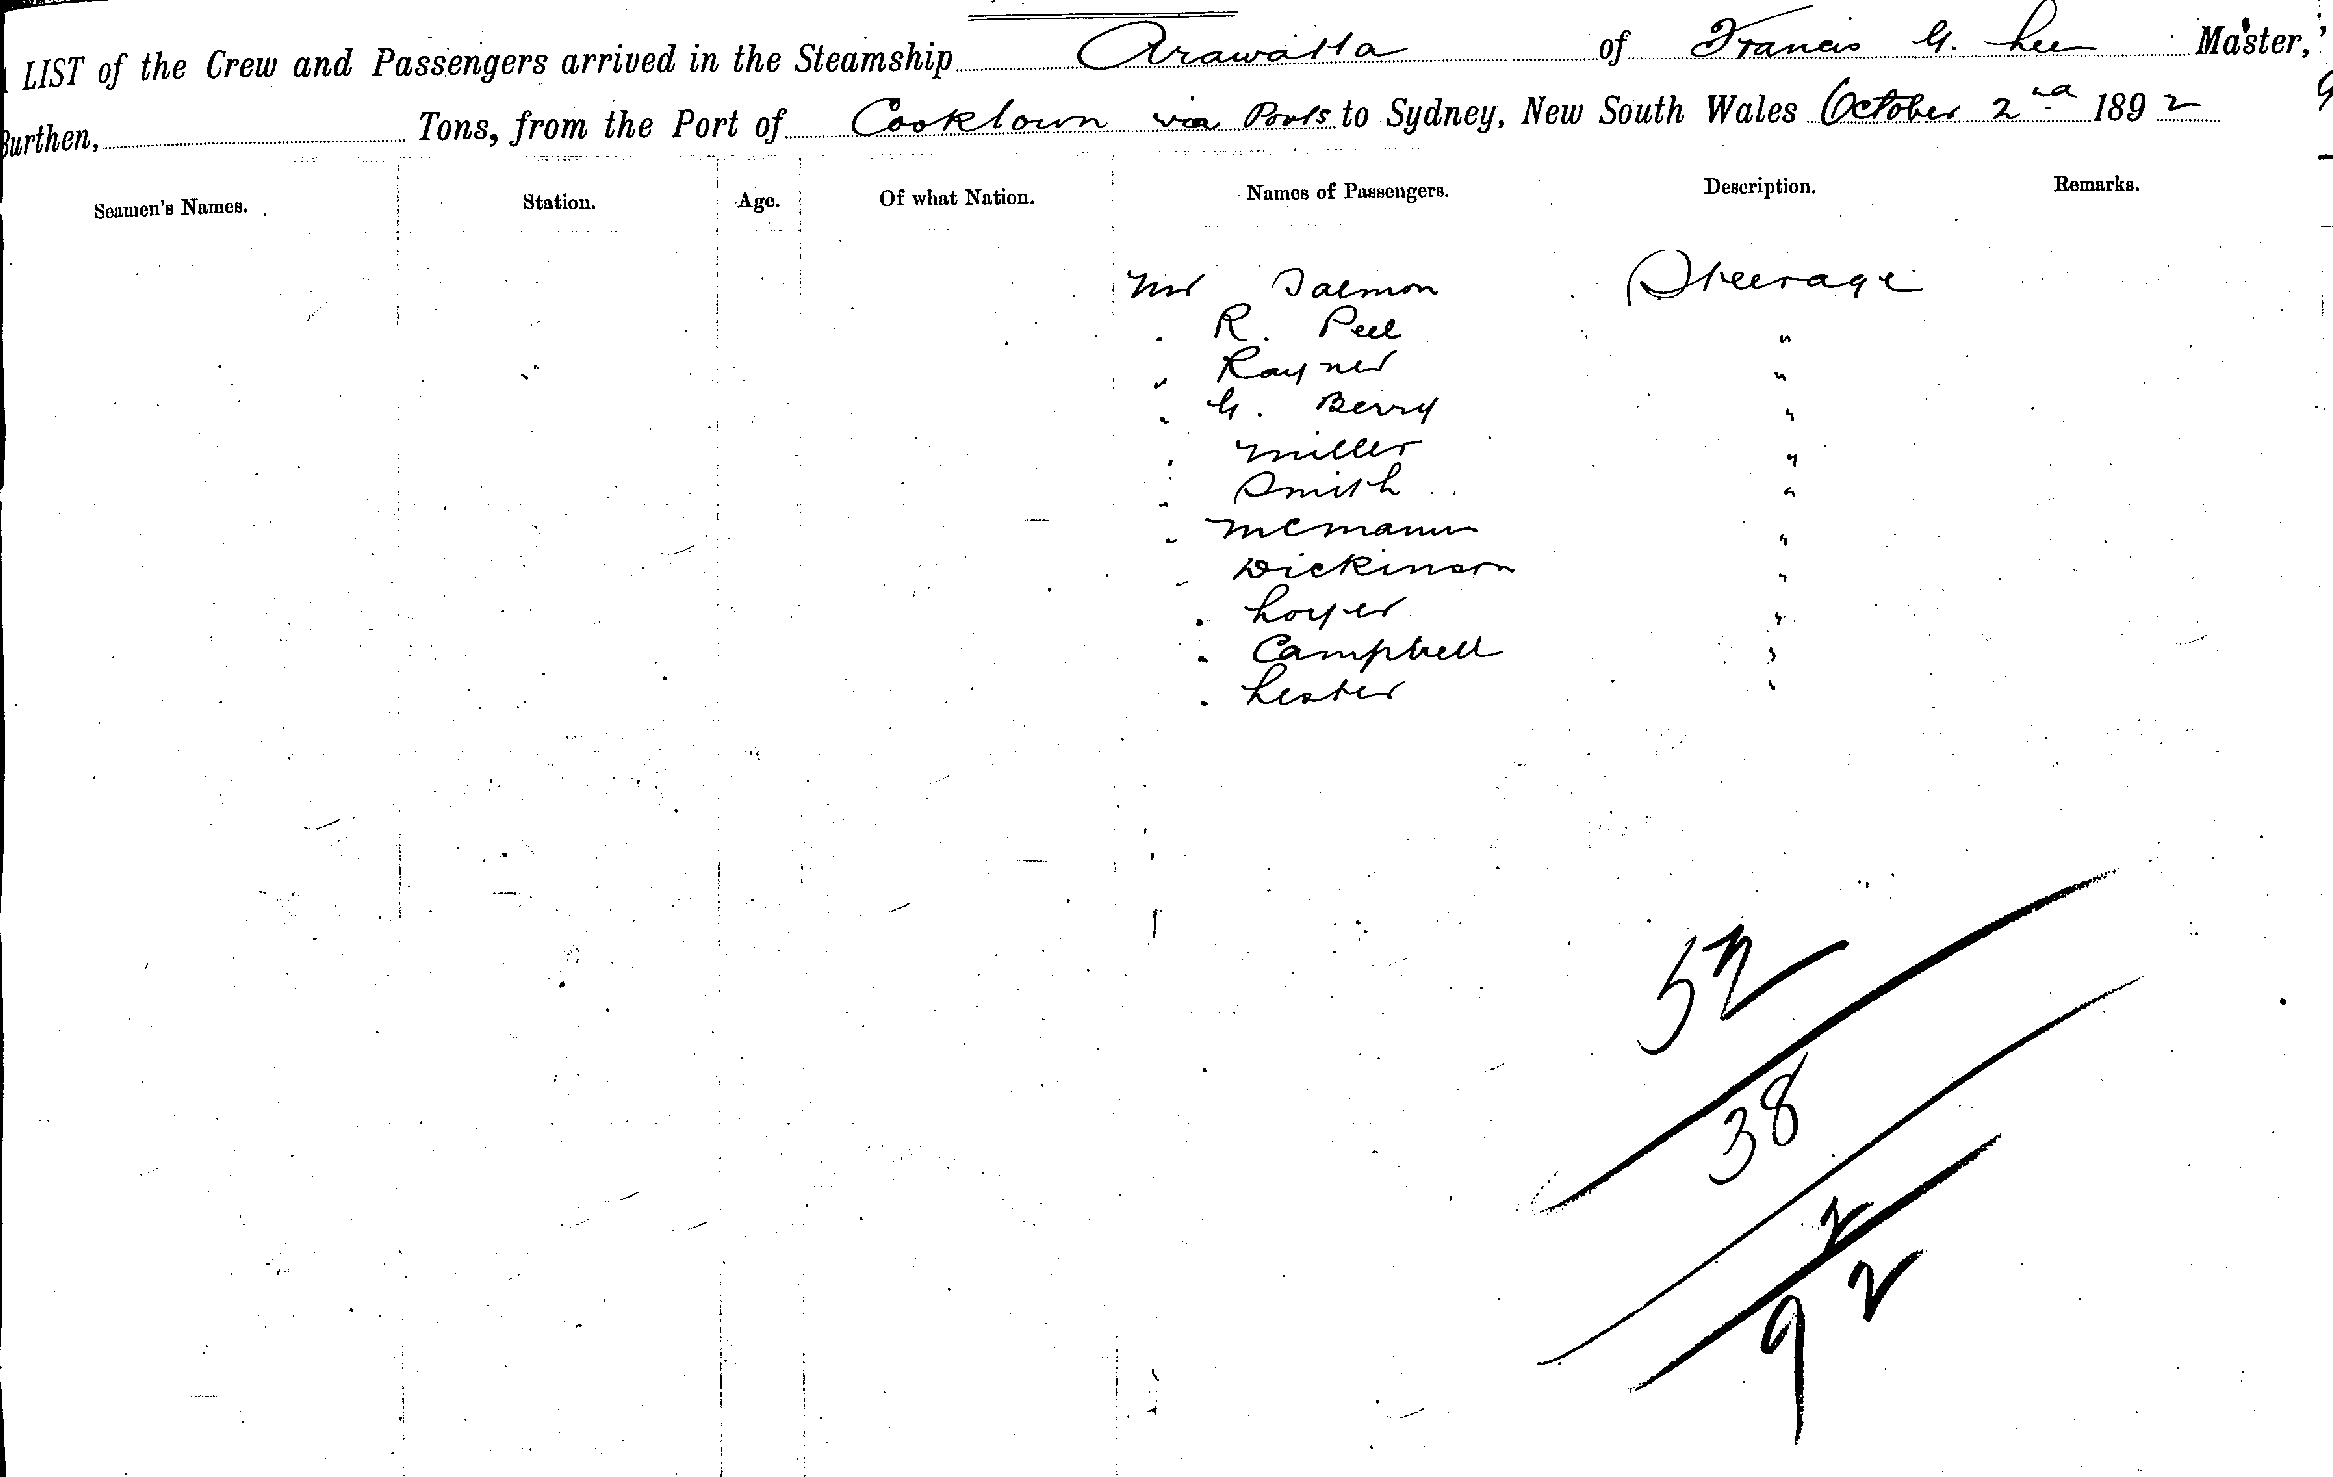 LIST of the Crew and Passengers arrived in the Steamship Arawatta of Francis G. Lee Master,
Burthen, Tons, from the Port of Cooktown via Ports to Sydney, New South Wales October 2nd 1892
Seamen's Names. Station. Age. Of what Nation. Names of Passengers. Description. Remarks.
Mr Salmon Steerage
" R. Peel "
" Rayner "
" G. Berry "
" Miller "
" Smith "
" McManus "
" Dickinson "
" Loyer "
" Campbell "
" Lester "
52
38
2
92